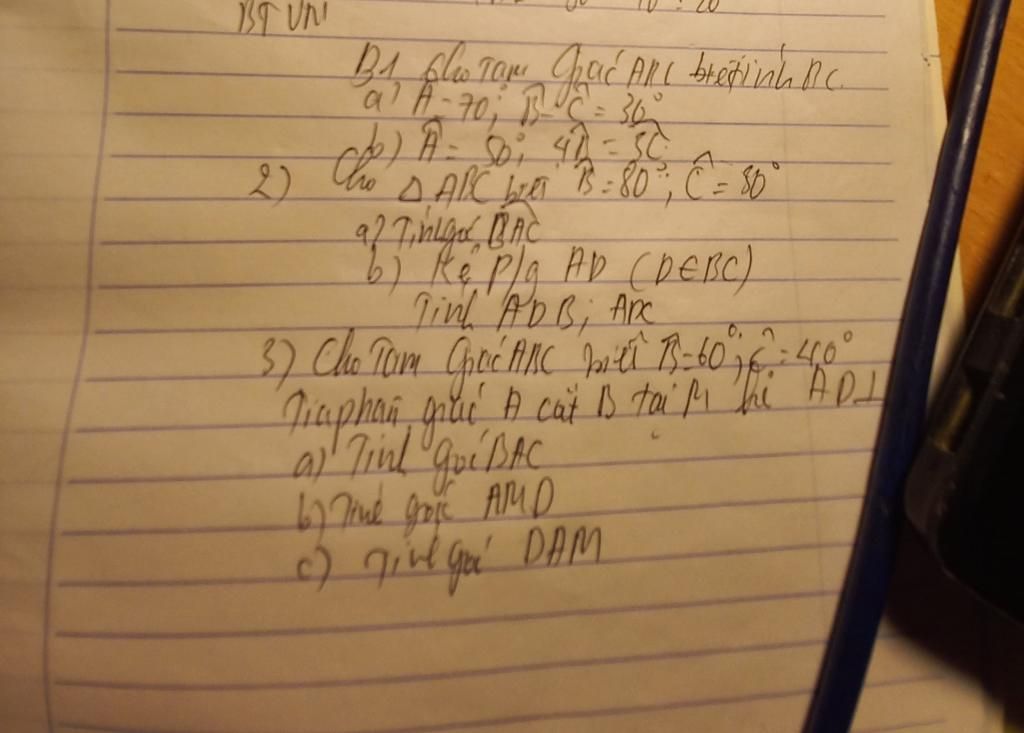 BT VN
B1 Cho Tam Giác ABC biết tính BC.
a) Â = 70°; B̂ - Ĉ = 30°
b) Â = 50°; 4B̂ = 3Ĉ
2) Cho Δ ABC biết B̂ = 80°; Ĉ = 30°
a) Tính góc BAC
b) Kẻ P/g AD (D∈BC)
Tính ADB; ADC
3) Cho Tam Giác ABC biết B̂ = 60°; Ĉ = 40°
Tia phân giác A cắt B tại M kẻ AD⊥
a) Tính góc BAC
b) Tính góc AMD
c) Tính góc DAM